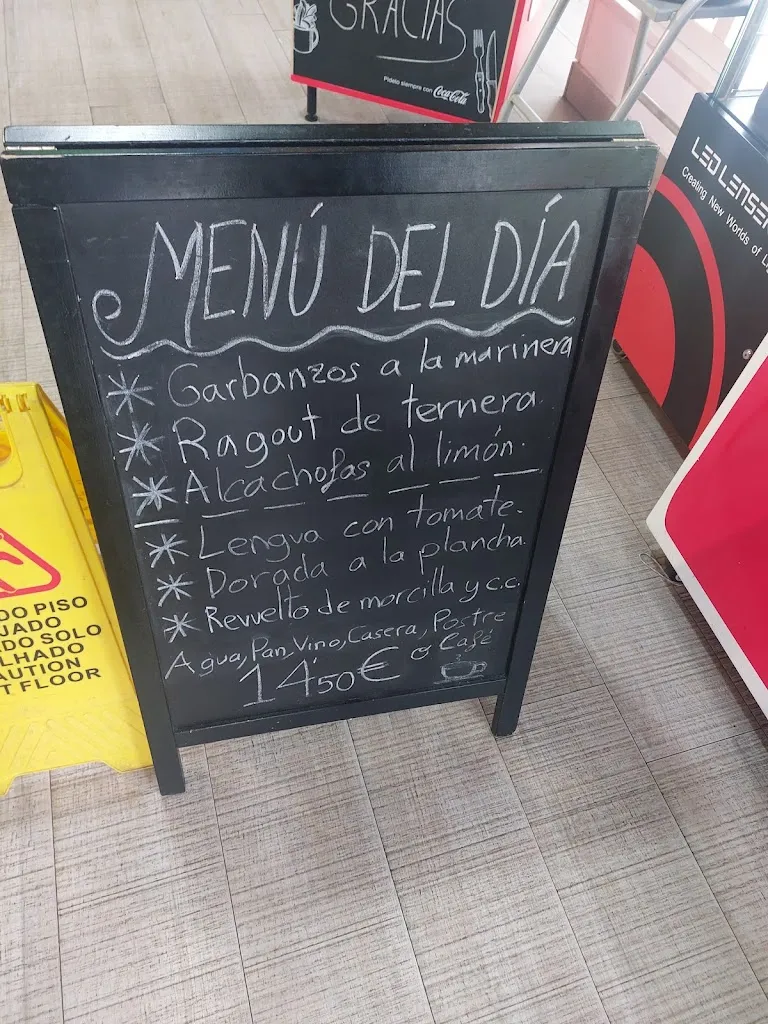 GRACIAS
Pídelo siempre con Coca-Cola
LED LENSER
Creating New Worlds of
MENÚ DEL DÍA
* Garbanzos a la marinera
* Ragout de ternera.
* Alcachofas al limón.
* Lengua con tomate.
* Dorada a la plancha.
* Revuelto de morcilla y c.c.
Agua, Pan, Vino, Casera, Postre
o Café
14'50€
DO PISO
JADO
DO SOLO
LHADO
AUTION
T FLOOR